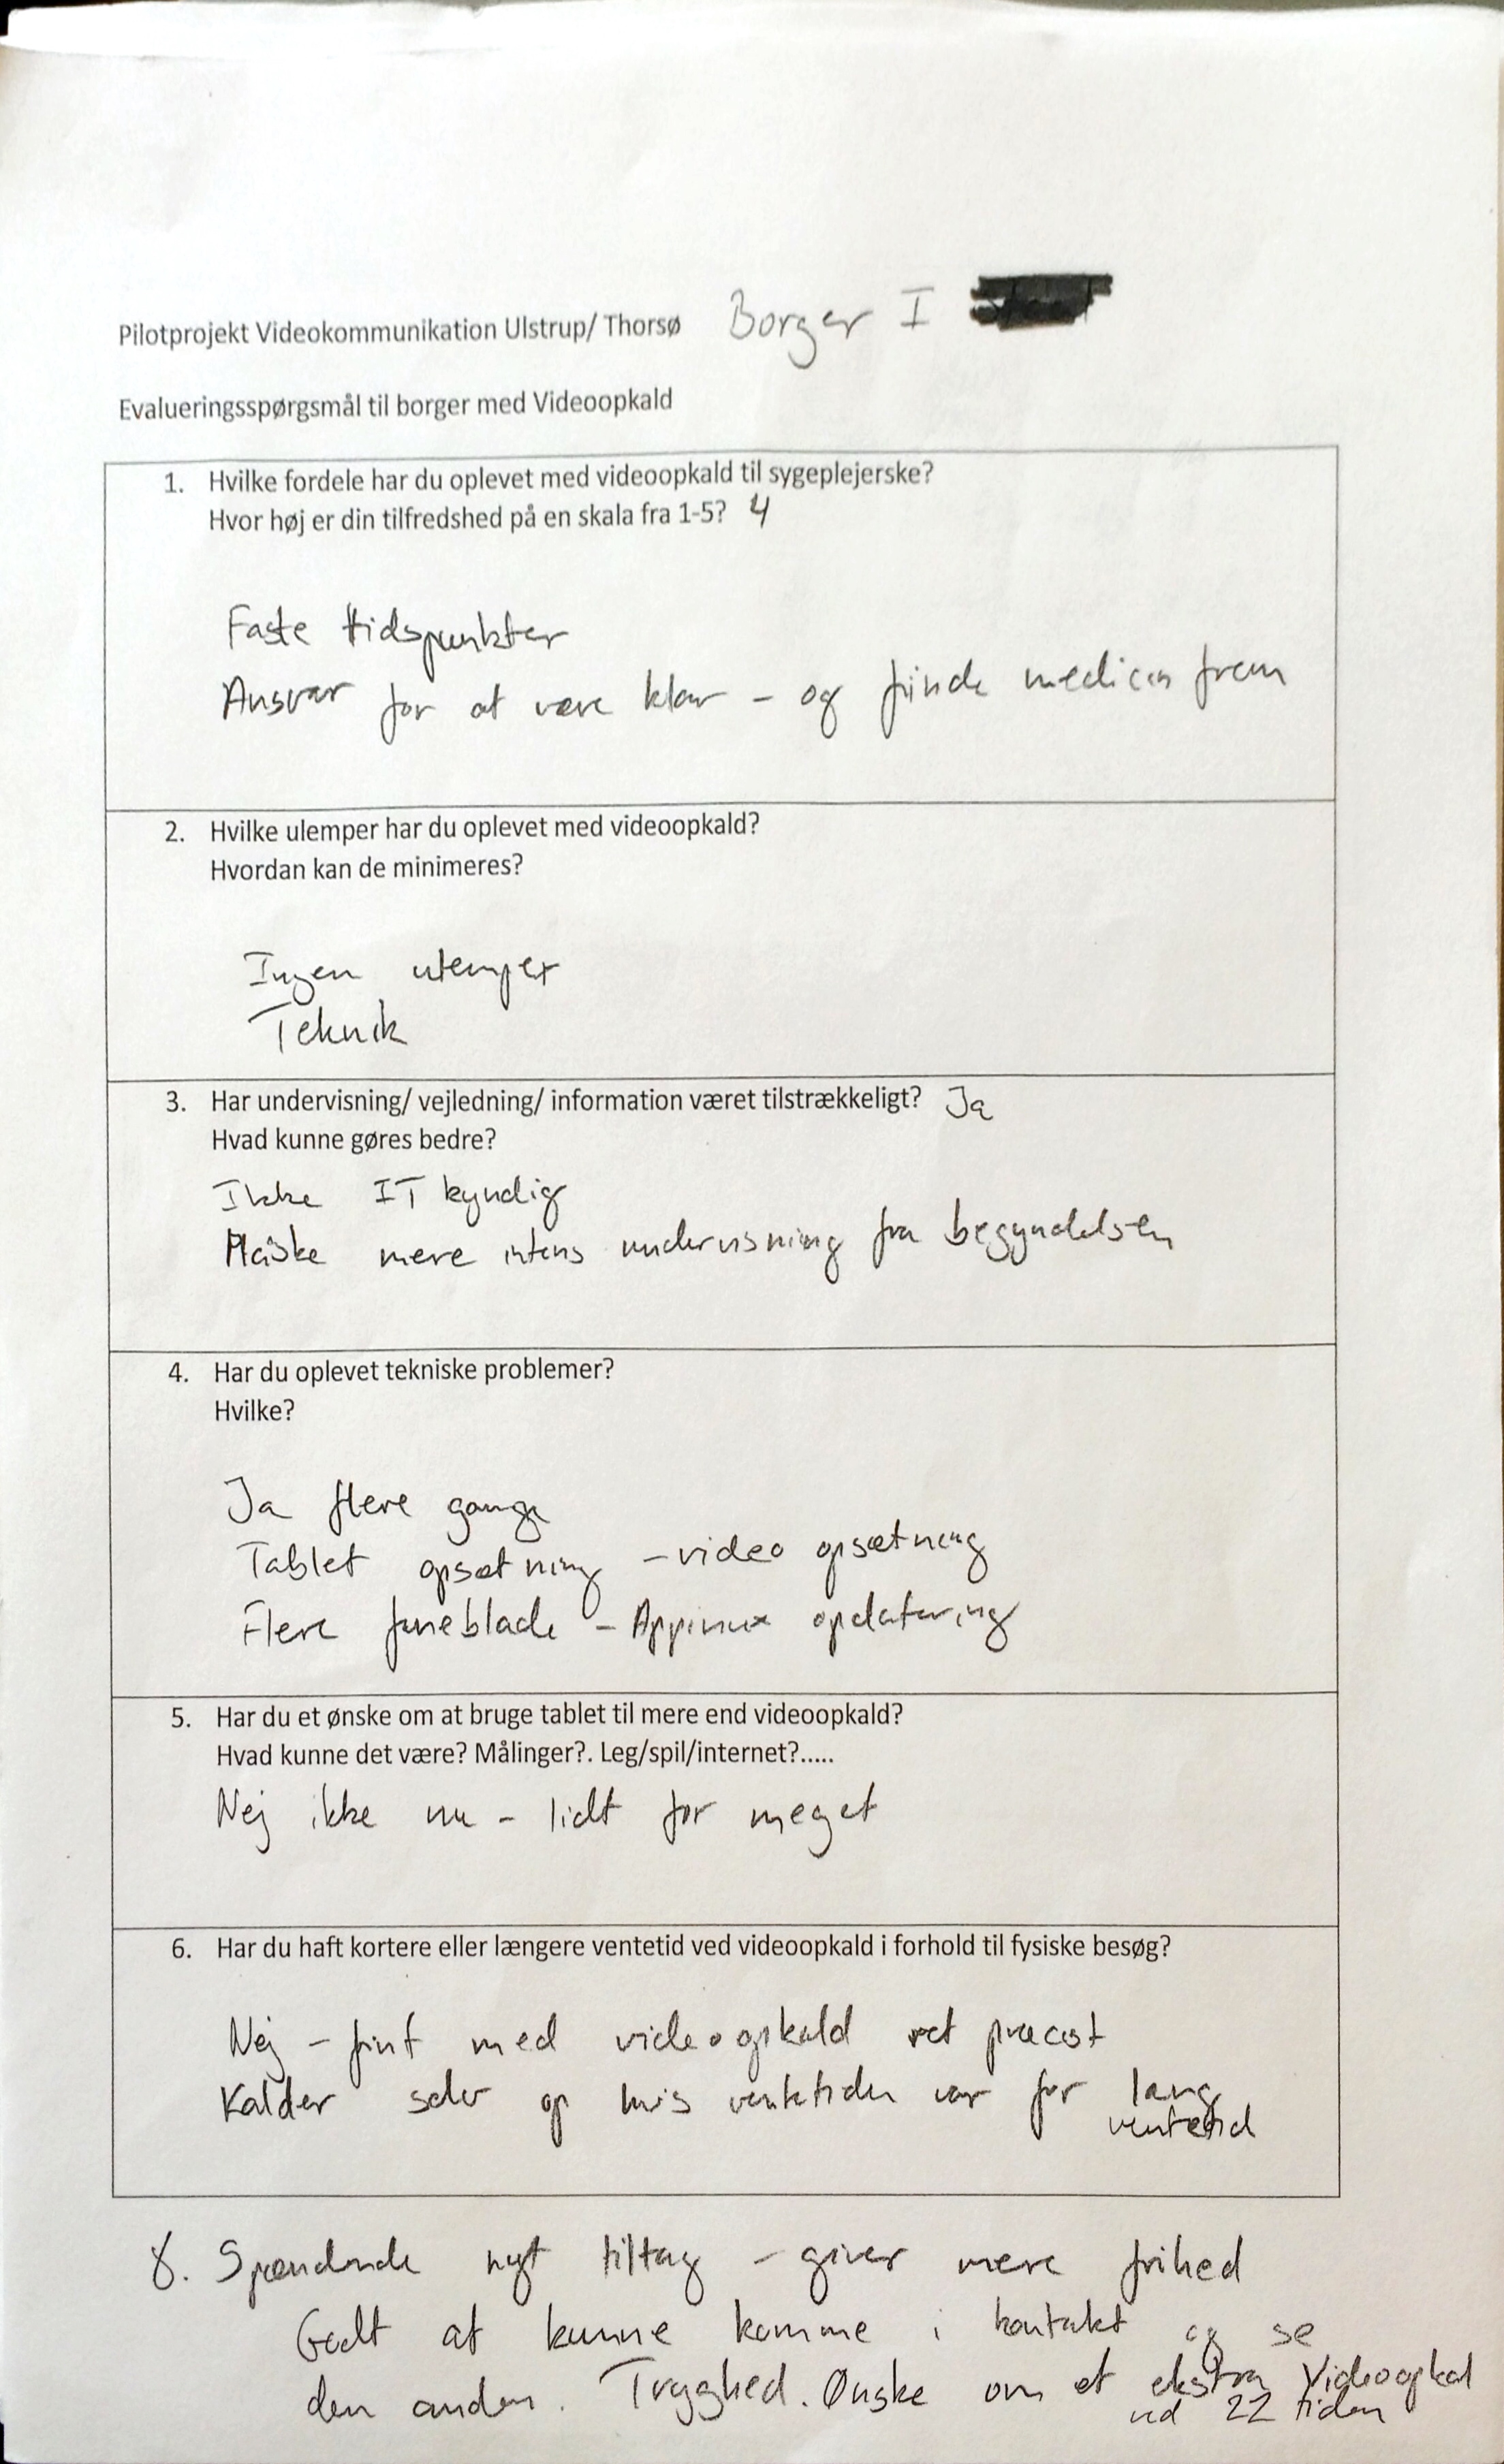 Pilotprojekt Videokommunikation Ulstrup/ Thorsø Borger I
Evalueringsspørgsmål til borger med Videoopkald
1. Hvilke fordele har du oplevet med videoopkald til sygeplejerske?
Hvor høj er din tilfredshed på en skala fra 1-5? 4
Faste tidspunkter
Ansvar for at være klar - og finde medicin frem
2. Hvilke ulemper har du oplevet med videoopkald?
Hvordan kan de minimeres?
Ingen ulemper
Teknik
3. Har undervisning/ vejledning/ information været tilstrækkeligt? Ja
Hvad kunne gøres bedre?
Ikke IT kyndig
Måske mere intens undervisning fra begyndelsen
4. Har du oplevet tekniske problemer?
Hvilke?
Ja flere gange
Tablet opsætning - video opsætning
Flere faneblade - Appinux opdatering
5. Har du et ønske om at bruge tablet til mere end videoopkald?
Hvad kunne det være? Målinger?. Leg/spil/internet?.....
Nej ikke nu - lidt for meget
6. Har du haft kortere eller længere ventetid ved videoopkald i forhold til fysiske besøg?
Nej - fint med videoopkald ret præcist
Kalder selv op hvis ventetiden var for lang
ventetid
8. Spændende nyt tiltag - giver mere frihed
Godt at kunne komme i kontakt og se
den anden. Tryghed. Ønske om et ekstra Videoopkal
ved 22 tiden